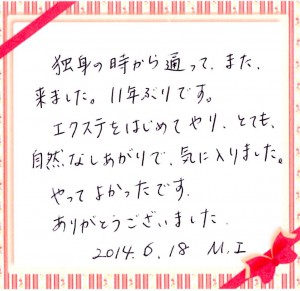 独身の時から通って、また、
来ました。11年ぶりです。
エクステをはじめてやり、とても、
自然なしあがりで、気に入りました。
やってよかったです.
ありがとうございました.
2014.6.18 M.I